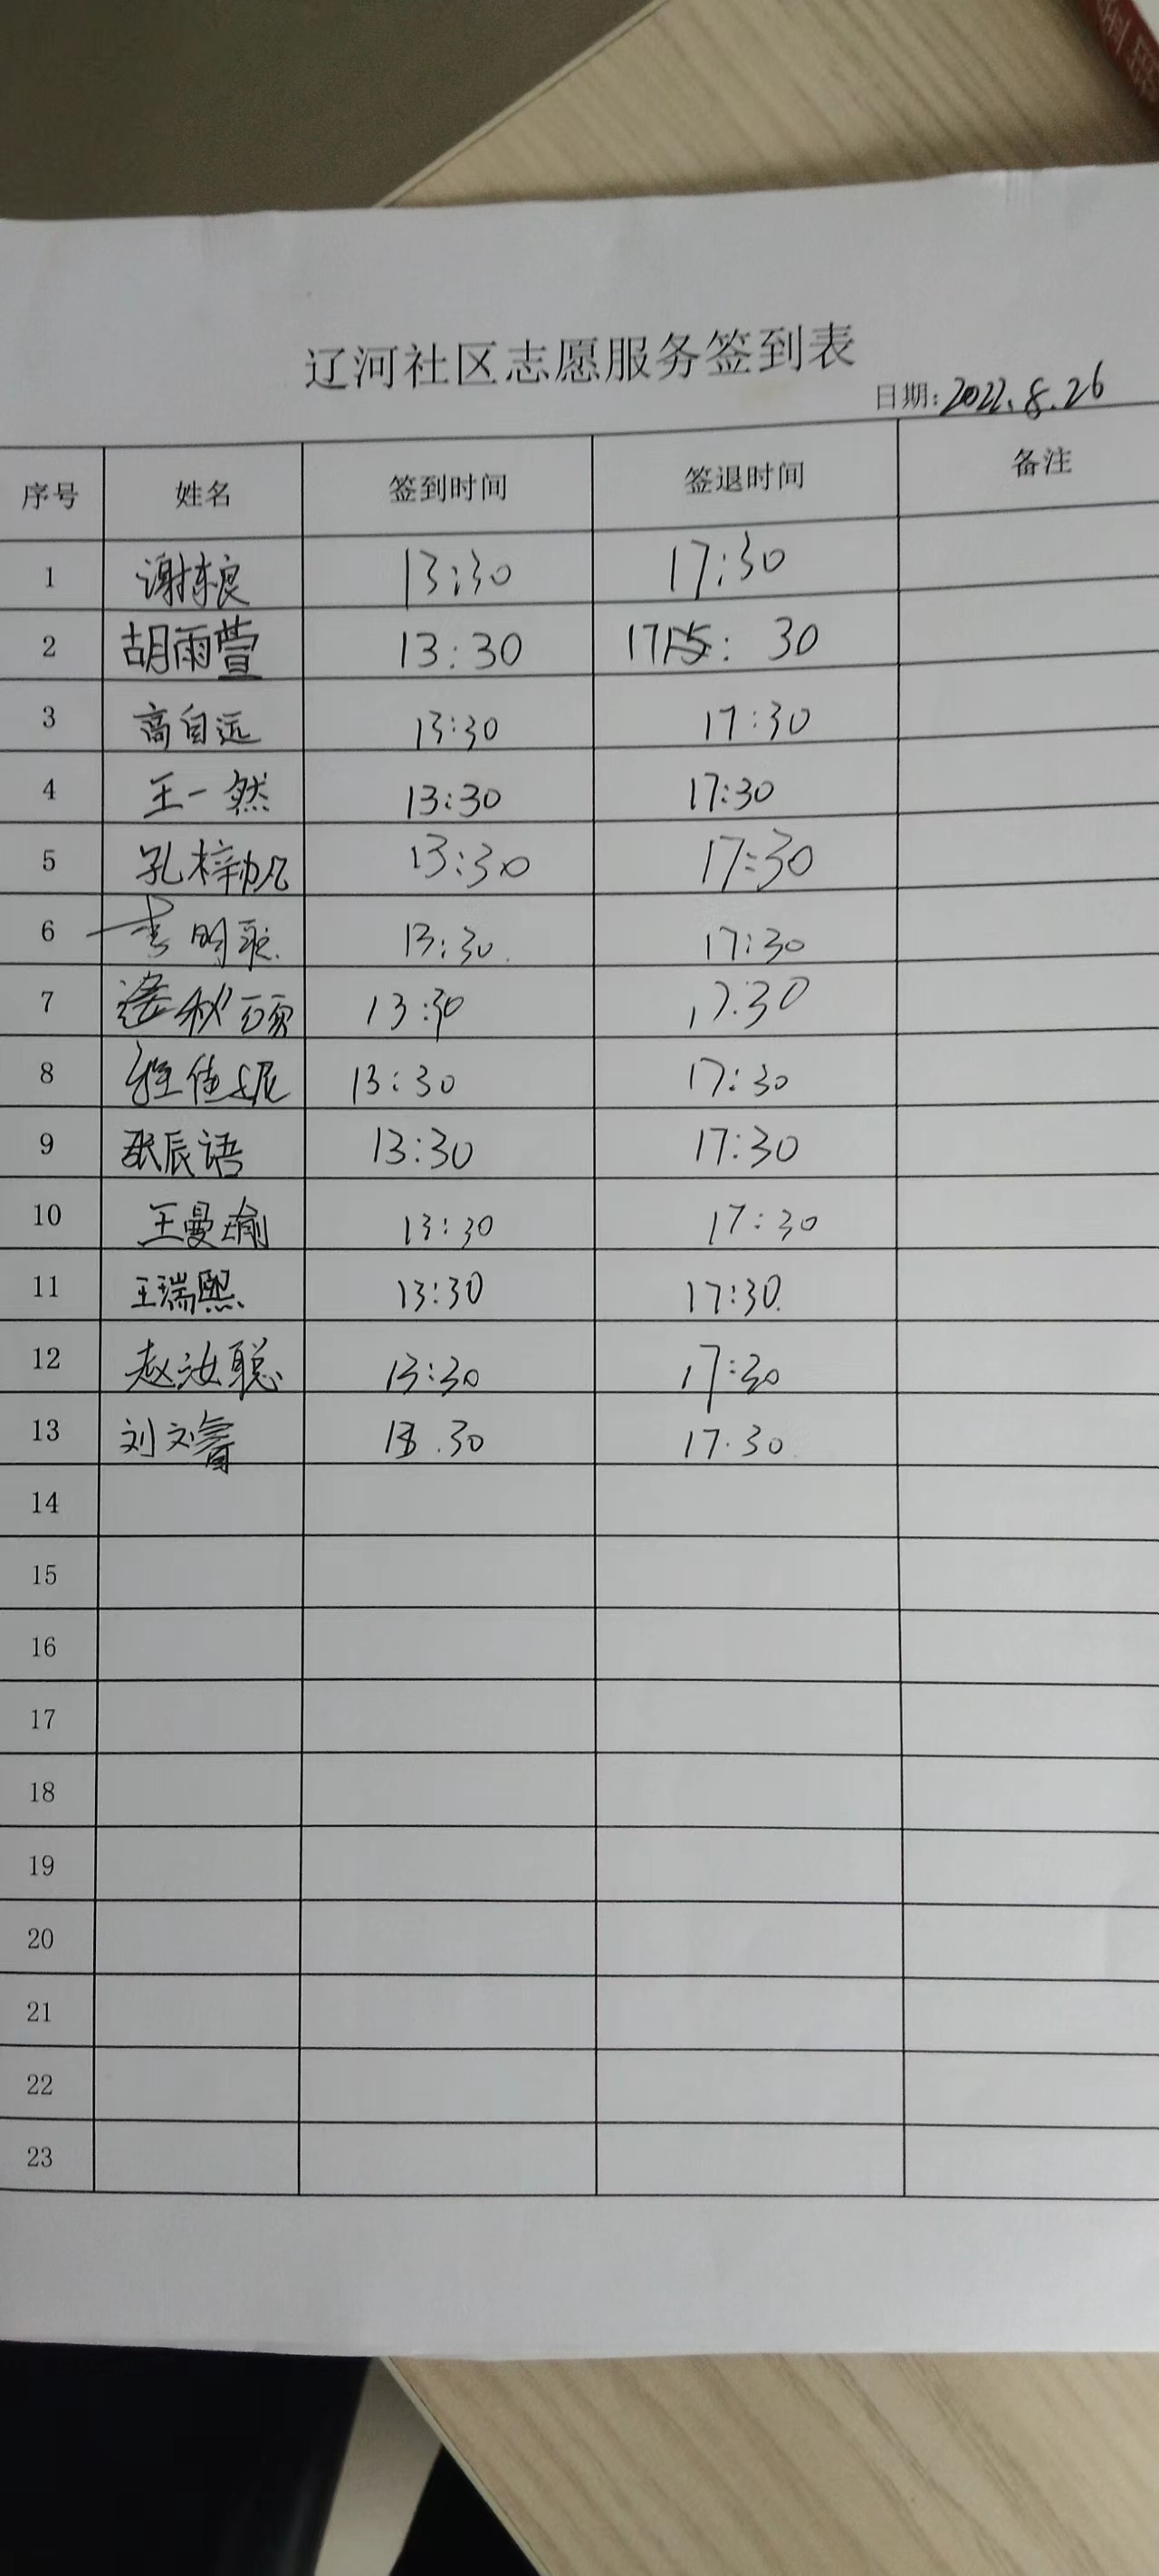 辽河社区志愿服务签到表
日期: 2022.8.26
序号 姓名 签到时间 签退时间 备注
1 谢栋良 13:30 17:30
2 胡雨萱 13:30 17: 30
3 高自远 13:30 17:30
4 王一然 13:30 17:30
5 孔梓帆 13:30 17:30
6 李明 13:30 17:30
7 13:30 17:30
8 程佳妮 13:30 17:30
9 张辰语 13:30 17:30
10 王曼瑜 13:30 17:30
11 王瑞熙 13:30 17:30
12 赵汝聪 13:30 17:30
13 刘文睿 13.30 17.30
14
15
16
17
18
19
20
21
22
23